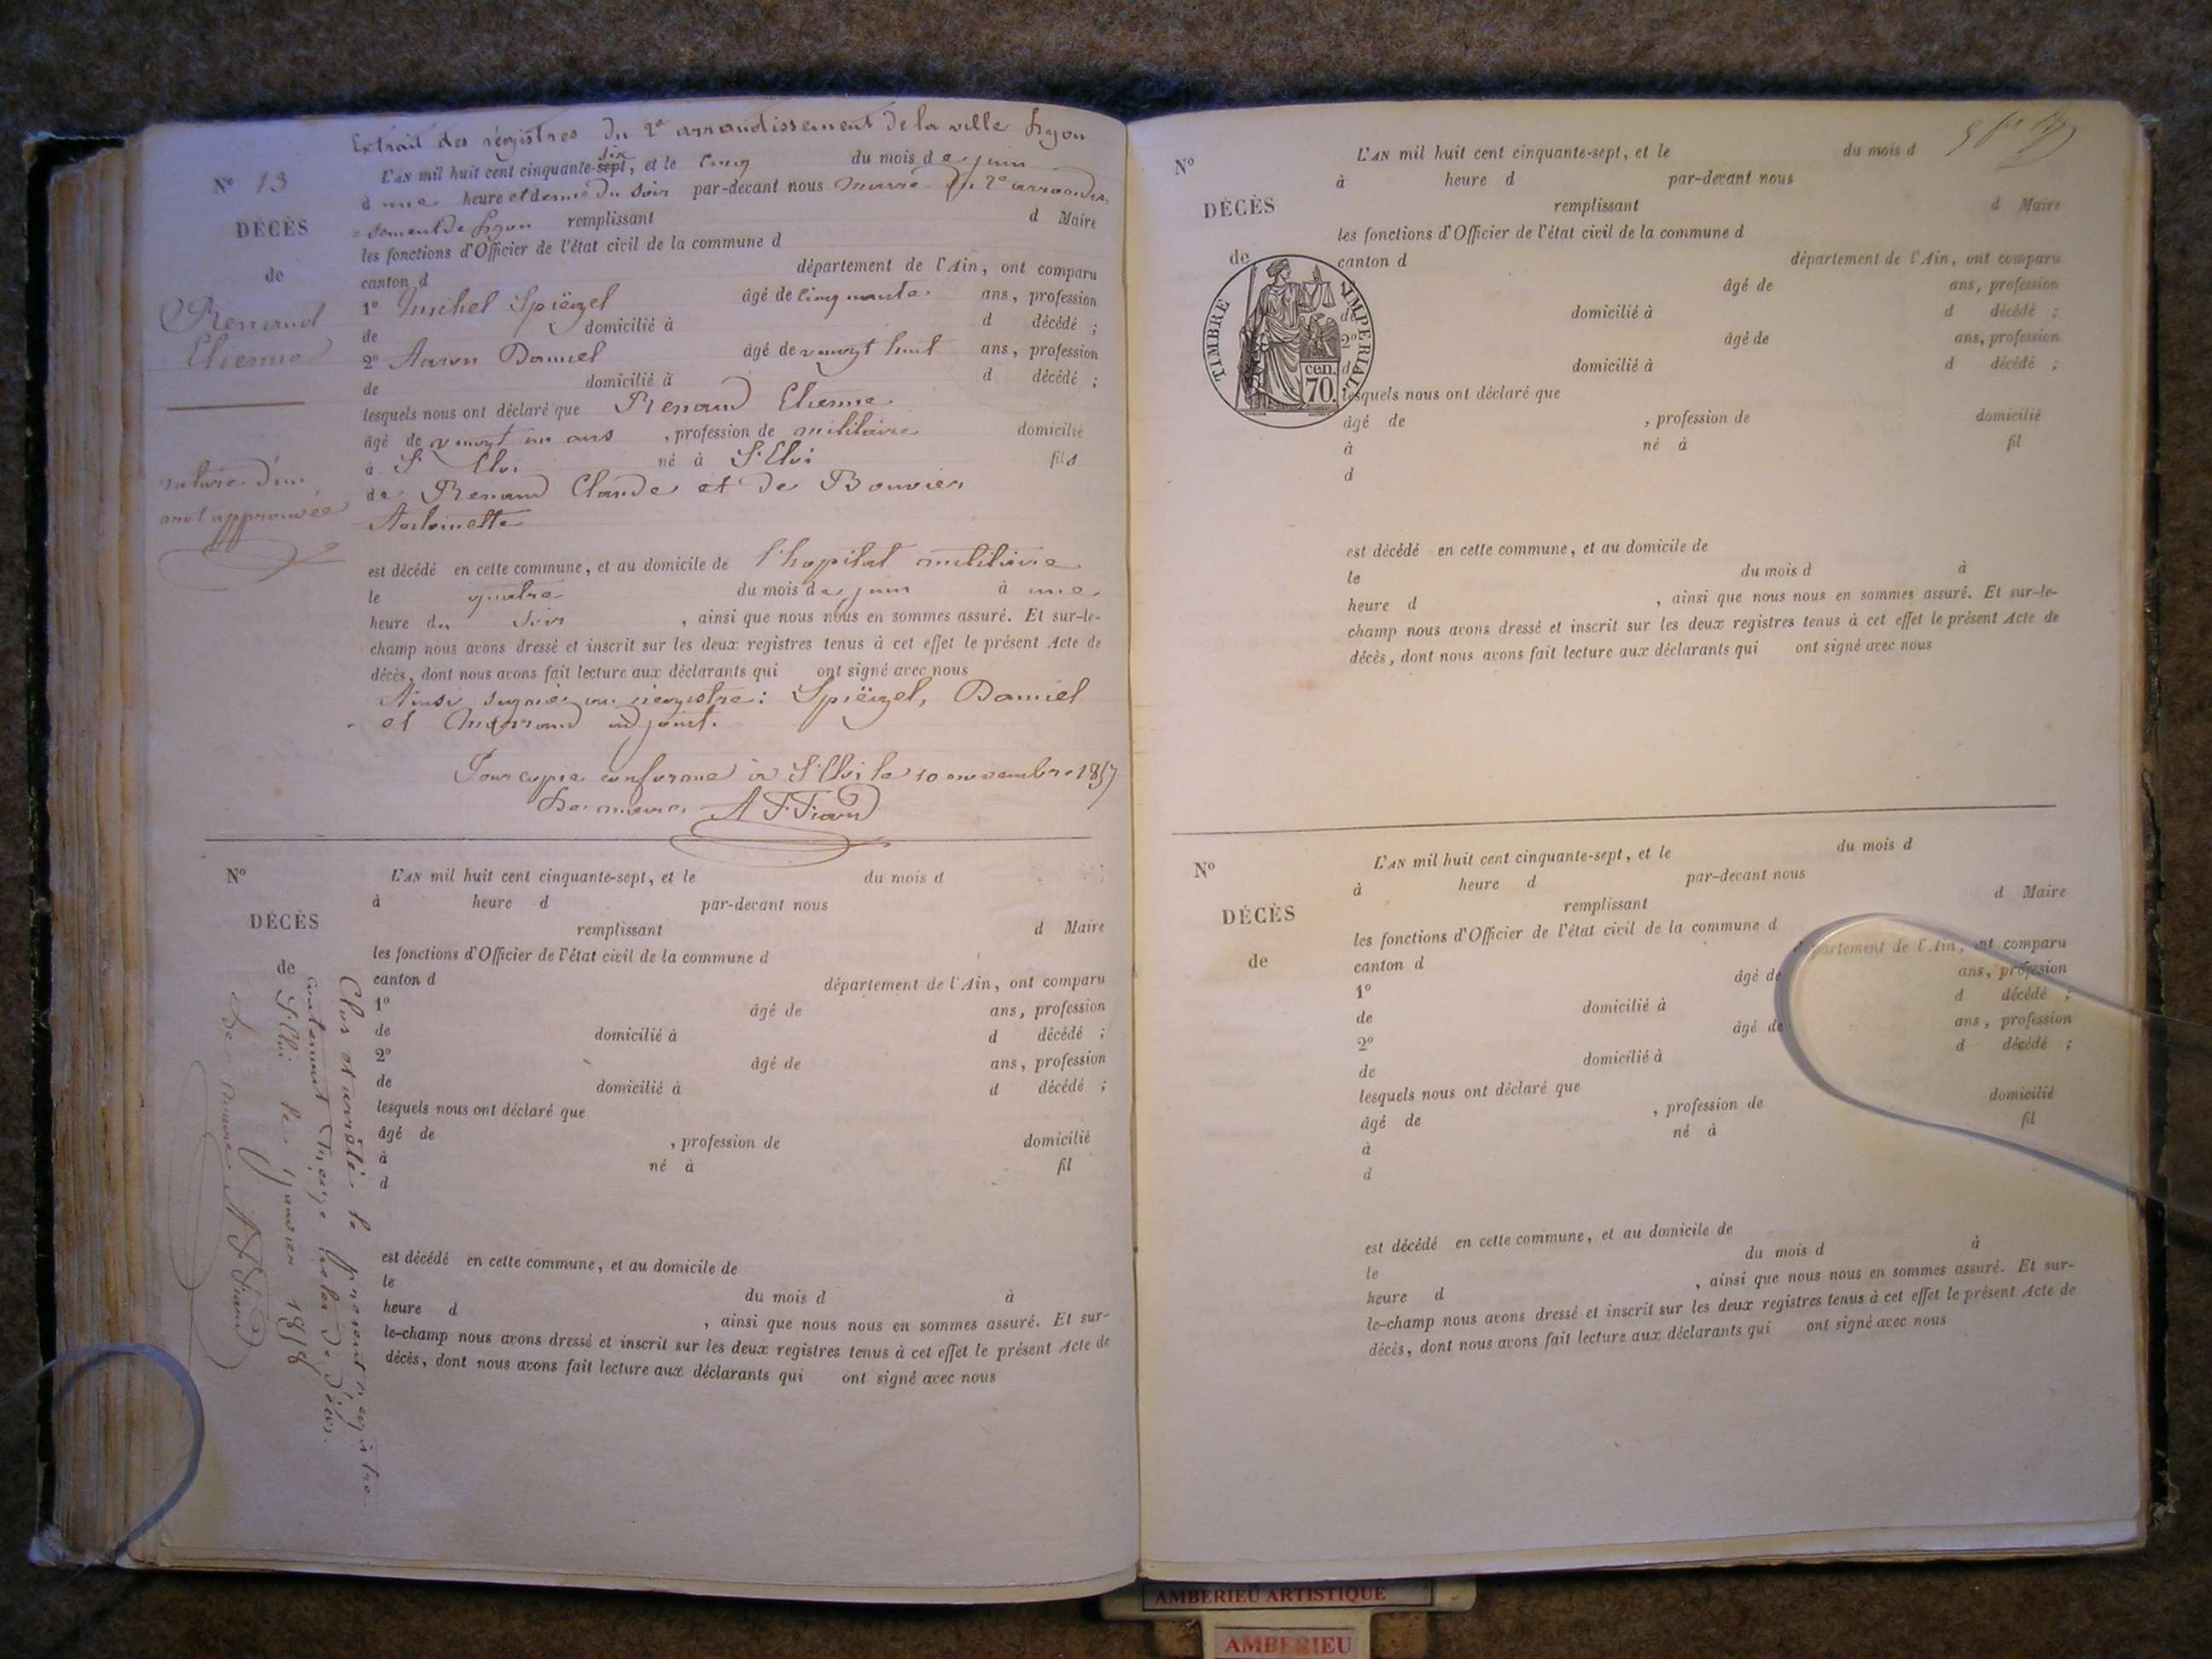 Extrait des régistres du 2e arrondissement de la ville Lyon
N° 13
DÉCÈS
de
Renaud
Etienne
rature d'un
mot approuvée
six
L'AN mil huit cent cinquante-sept, et le cinq du mois de juin
à une heure et demie du soir par-devant nous maire du 2e arrondis-
sement de Lyon remplissant d Maire
les fonctions d'Officier de l'état civil de la commune d
canton d département de l'Ain, ont comparu
1° Michel Spiëgel âgé de cinquante ans, profession
de domicilié à d décédé ;
2° Aaron Daniel âgé de vingt huit ans, profession
de domicilié à d décédé ;
lesquels nous ont déclaré que Renaud Etienne
âgé de vingt un ans , profession de militaire domicilié
à St Eloi né à St Eloi fils
de Renaud Claude et de Bouvier
Antoinette
est décédé en cette commune, et au domicile de l'hopital militaire
le quatre du mois de juin à une
heure du soir , ainsi que nous nous en sommes assuré. Et sur-le-
champ nous avons dressé et inscrit sur les deux registres tenus à cet effet le présent Acte de
décès, dont nous avons fait lecture aux déclarants qui ont signé avec nous
Ainsi signé au régistre: Spiëgel, Daniel
et adjoint.
Pour copie conforme à St Eloi le 10 novembre 1857
Le maire
N°
DÉCÈS
de
L'AN mil huit cent cinquante-sept, et le du mois d
à heure d par-devant nous
remplissant d Maire
les fonctions d'Officier de l'état civil de la commune d
canton d département de l'Ain, ont comparu
1° âgé de ans, profession
de domicilié à d décédé ;
2° âgé de ans, profession
de domicilié à d décédé ;
lesquels nous ont déclaré que
âgé de , profession de domicilié
à né à fil
d
est décédé en cette commune, et au domicile de
le du mois d à
heure d , ainsi que nous nous en sommes assuré. Et sur-
le-champ nous avons dressé et inscrit sur les deux registres tenus à cet effet le présent Acte de
décès, dont nous avons fait lecture aux déclarants qui ont signé avec nous
Clos et arrêté le présent régistre
contenant treize actes de décès.
St Eloi le janvier 1858
Le maire
N°
DÉCÈS
de
L'AN mil huit cent cinquante-sept, et le du mois d
à heure d par-devant nous
remplissant d Maire
les fonctions d'Officier de l'état civil de la commune d
canton d département de l'Ain, ont comparu
âgé de ans, profession
de domicilié à d décédé ;
2° âgé de ans, profession
d domicilié à d décédé ;
lesquels nous ont déclaré que
âgé de , profession de domicilié
à né à fil
d
TIMBRE IMPERIAL
cen.
70.
est décédé en cette commune, et au domicile de
le du mois d à
heure d , ainsi que nous nous en sommes assuré. Et sur-le-
champ nous avons dressé et inscrit sur les deux registres tenus à cet effet le présent Acte de
décès, dont nous avons fait lecture aux déclarants qui ont signé avec nous
N°
DÉCÈS
de
L'AN mil huit cent cinquante-sept, et le du mois d
à heure d par-devant nous
remplissant d Maire
les fonctions d'Officier de l'état civil de la commune d
canton d département de l'Ain, ont comparu
1° âgé de ans, profession
de domicilié à d décédé ;
2° âgé de ans, profession
de domicilié à d décédé ;
lesquels nous ont déclaré que
âgé de , profession de domicilié
à né à fil
d
est décédé en cette commune, et au domicile de
le du mois d à
heure d , ainsi que nous nous en sommes assuré. Et sur-
le-champ nous avons dressé et inscrit sur les deux registres tenus à cet effet le présent Acte de
décès, dont nous avons fait lecture aux déclarants qui ont signé avec nous
AMBERIEU ARTISTIQUE
AMBERIEU